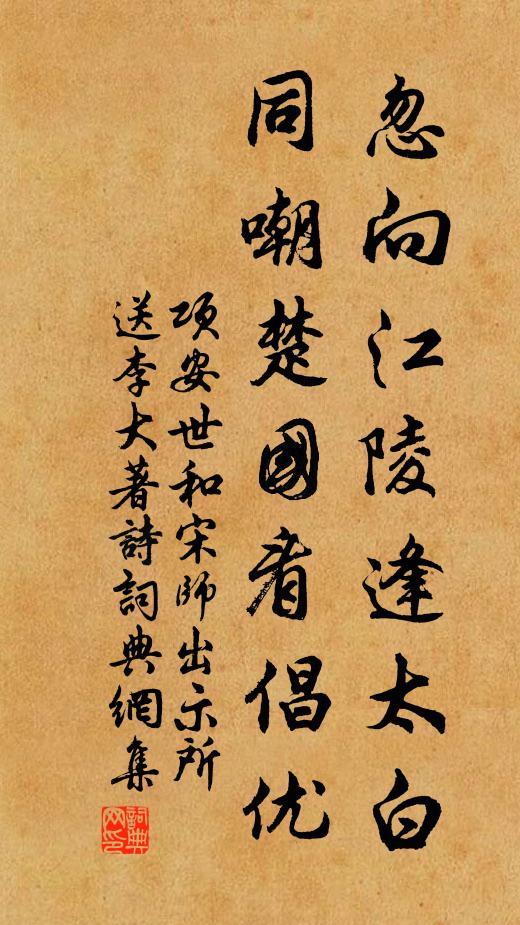 忽向江陵逢太白
同嘲楚國看倡优
项安世和宋師出示所
送李大著詩詞典網集
詞典网印